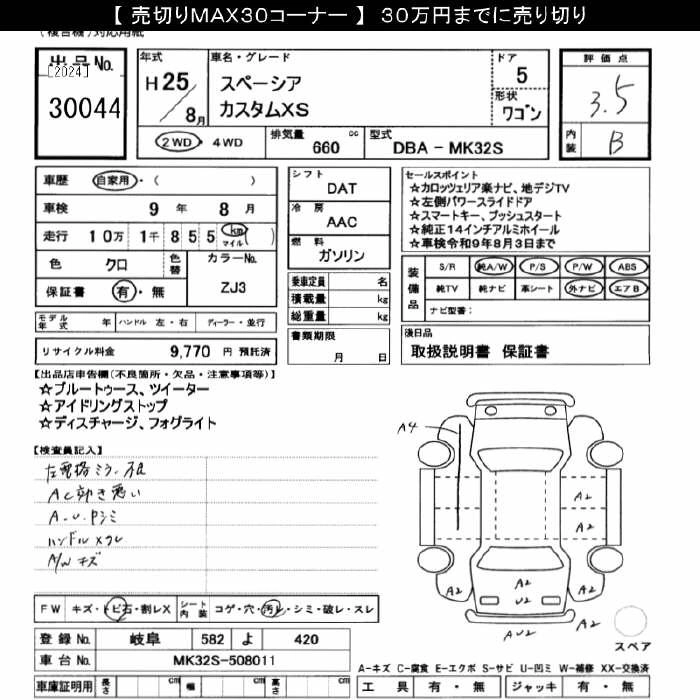 【 売切りMAX30コーナー 】 30万円までに売り切り
(複合機)対応用紙
出品No.
[2024]
30044
年式
H25
8月
車名・グレード
スペーシア
カスタムXS
ドア
5
形状
ワゴン
評価点
3.5
内装
B
2WD ・ 4WD
排気量
660 cc
型式
DBA - MK32S
車歴 自家用・( )
車検 9 年 8 月
走行 10万 1千 8 5 5 km マイル ( )
色 クロ 色替
カラーNo.
ZJ3
保証書 有・無
シフト
DAT
冷房
AAC
燃料
ガソリン
乗車定員 名
積載量 kg
総重量 kg
セールスポイント
☆カロッツェリア楽ナビ、地デジTV
☆左側パワースライドドア
☆スマートキー、プッシュスタート
☆純正14インチアルミホイール
☆車検令和9年8月3日まで
装備品
S/R 純A/W P/S P/W ABS
純TV 純ナビ 革シート 外ナビ エアB
ナビ型番:
モデル年式 年 ハンドル 左・右 ディーラー・並行
リサイクル料金 9,770 円 預託済
書類期限
月 日
後日品
取扱説明書 保証書
【出品店申告欄(不良箇所・欠品・注意事項等)】
☆ブルートゥース、ツイーター
☆アイドリングストップ
☆ディスチャージ、フォグライト
【検査員記入】
AC効き悪い
A.U.Pシミ
ハンドルスレ
A/Wキズ
A4
A2
A2
A2
A2
A2
U2
AU2
スペア
FW キズ・トビ石・割レX
シート内装 コゲ・穴・汚レ・シミ・破レ・スレ
登録No. 岐阜 582 よ 420
車台No. MK32S-508011
車庫証明用 長さ cm 幅 cm 高さ cm
A-キズ C-腐食 E-エクボ S-サビ U-凹ミ W-補修 XX-交換済
工具 有・無 ジャッキ 有・無